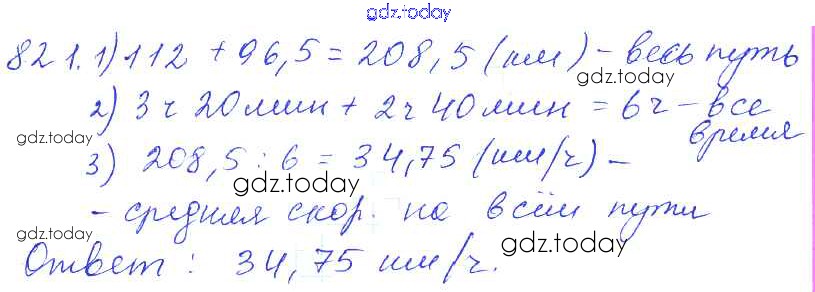 gdz.today
821. 1) 112 + 96,5 = 208,5 (км) - весь путь
gdz.today
2) 3 ч 20 мин + 2 ч 40 мин = 6 ч - все время
gdz.today
gdz.today
3) 208,5 : 6 = 34,75 (км/ч) -
gdz.today
- средняя скор. на всём пути
gdz.today
Ответ : 34,75 км/ч.